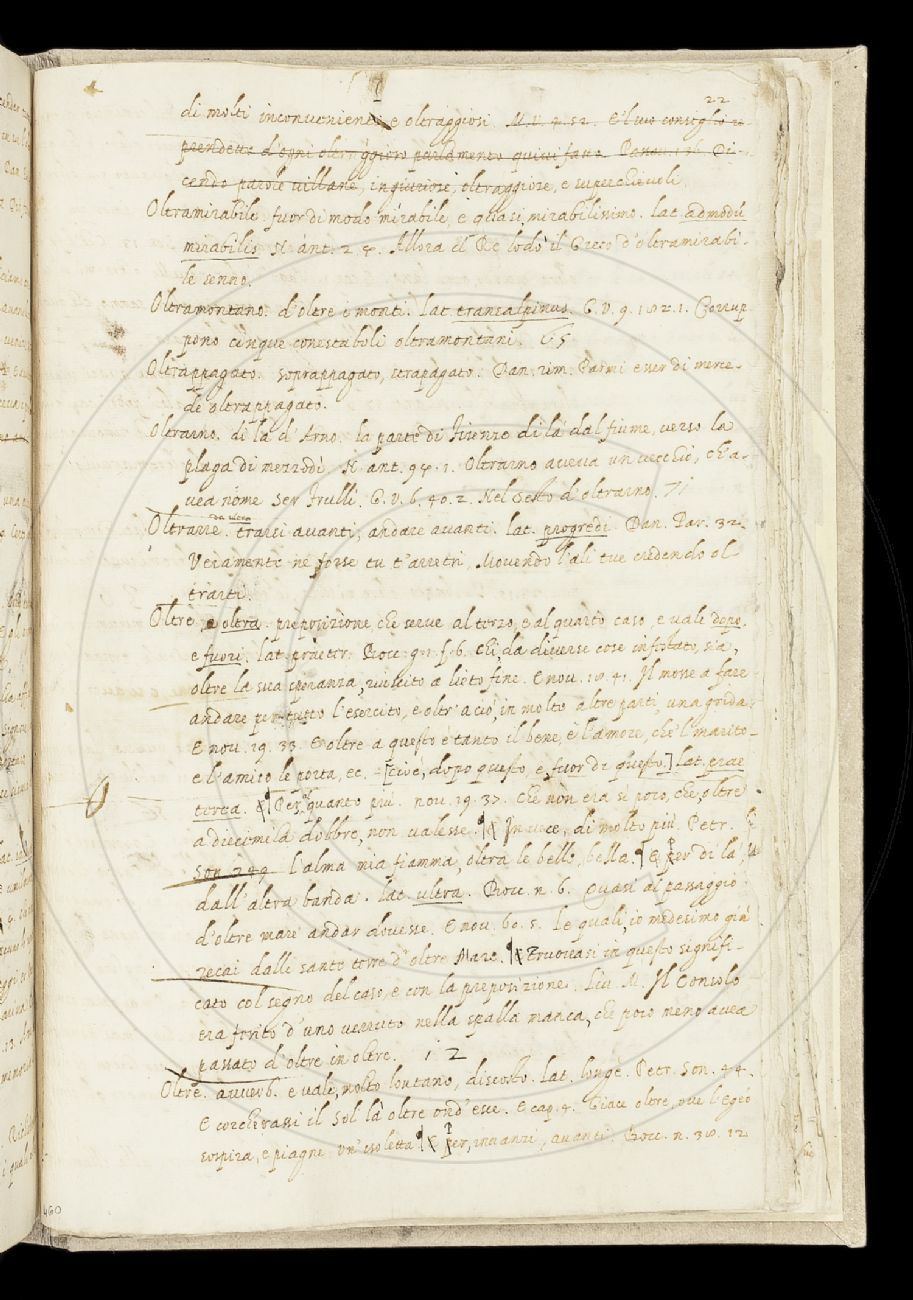 22
di molti inconuenienti e oltraggiosi. M.V. 4.52. E'l uio consiglio re
prendette d'ogni oltraggioso parlamento quiui fatto. Panou. 136. Di-
cendo parole uillane, ingiuriose, oltraggiose, e superchieuoli
Oltramirabile. fuor di modo mirabile, e quasi mirabilissimo. lat. admodũ
mirabilis. N. ant. 2. 4. Allora il Re lodò il Greco d'oltramirabi-
le senno.
Oltramontano. d'oltre i monti. lat. transalpinus. G.V. 9. 182. 1. Corrup
pono cinque conestaboli oltramontani. 65
Oltrappagato. soprappagato, strapagato. Dan. rim. Parmi esser di merce-
de oltrappagato.
Oltrarno. di là d'Arno. la parte di Firenze di là dal fiume, verso la
plaga di mezzodì. N. ant. 94. 1. Oltrarno aveva un vecchio, ch'a-
vea nome Ser Frulli. G.V. 6. 40. 2. Nel Sesto d'oltrarno. 71
Oltrarre. trarsi avanti, andare avanti. lat. progredi. Dan. Par. 32.
Veramente nè forse tu t'arretri, Movendo l'ali tue credendo ol
trarti.
Oltre e oltra. preposizione, che serve al terzo, e al quarto caso, e vale dopo,
e fuori. lat. praeter. Bocc. g. 2. f. 6. Chi, da diverse cose infestato, sia,
oltre la sua speranza, riuscito a lieto fine. E nou. 18. 41. Il mosse a fare
andare per tutto l'esercito, e oltr'acciò, in molte altre parti, una grida.
E nou. 19. 33. E oltre a questo è tanto il bene, e l'amore, che'l marito
e l'amico le porta, ec. [cioè, dopo questo, e fuor di questo.] lat. prae
terea. Per quanto più. nou. 19. 37. Che non era sì poco, che, oltre
a diecimila dobbre, non valesse. In vece, di molto più. Petr.
son. 249. l'alma mia fiamma, oltra le belle, bella. E per di la,
dall'altra banda. lat. ultra. Bocc. n. 6. Quasi al passaggio
d'oltre mare andar dovesse. E nou. 60. 5. le quali, io medesimo già
recai dalle sante terre d'oltre Mare. Truovasi in questo signifi-
cato col segno del caso, e con la preposizione. Liu. M. Il Consolo
era ferito d'uno verruto nella spalla manca, che poco meno avea
passato d'oltre in oltre. 12
Oltre. avverb. e vale, molto lontano, discosto. lat. longe. Petr. Son. 44.
E corcherassi il Sol là oltre ond'esce. E cap. 4. Giace oltre, ove l'Egeo
sospira, e piagne un'isoletta. E per, innanzi, avanti. Bocc. n. 30. 12
460